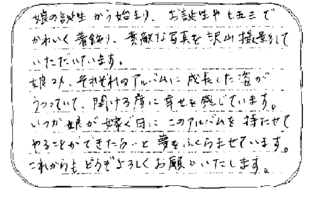 娘の誕生から始まり、お誕生や七五三で
かわいく着飾り、素敵な写真を沢山撮影して
いただいています。
娘2人、それぞれのアルバムに成長した姿が
うつっていて、開ける度に幸せを感じています。
いつか娘が嫁ぐ日に このアルバムを 持たせて
やることができたら…と 夢をふくらませています。
これからも どうぞよろしく お願いいたします。